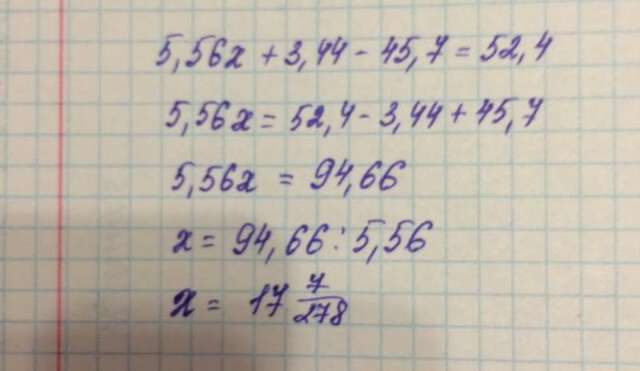 5,56x + 3,44 - 45,7 = 52,4
5,56x = 52,4 - 3,44 + 45,7
5,56x = 94,66
x = 94,66 : 5,56
x = 17 7/278